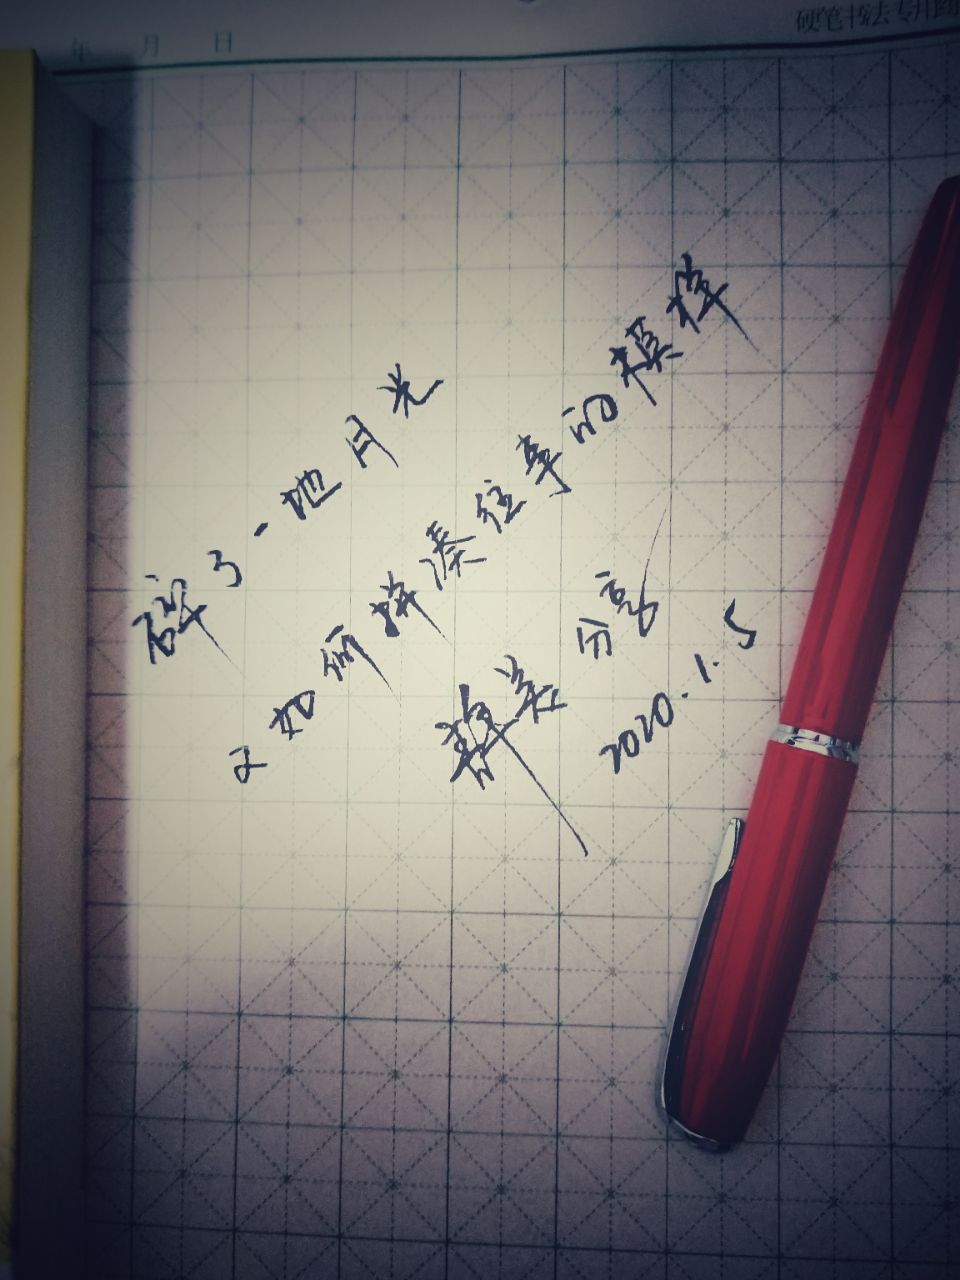 年 月 日
硬笔书法专用
碎了一地月光
又如何拼凑往事的模样
分享
2020.1.5